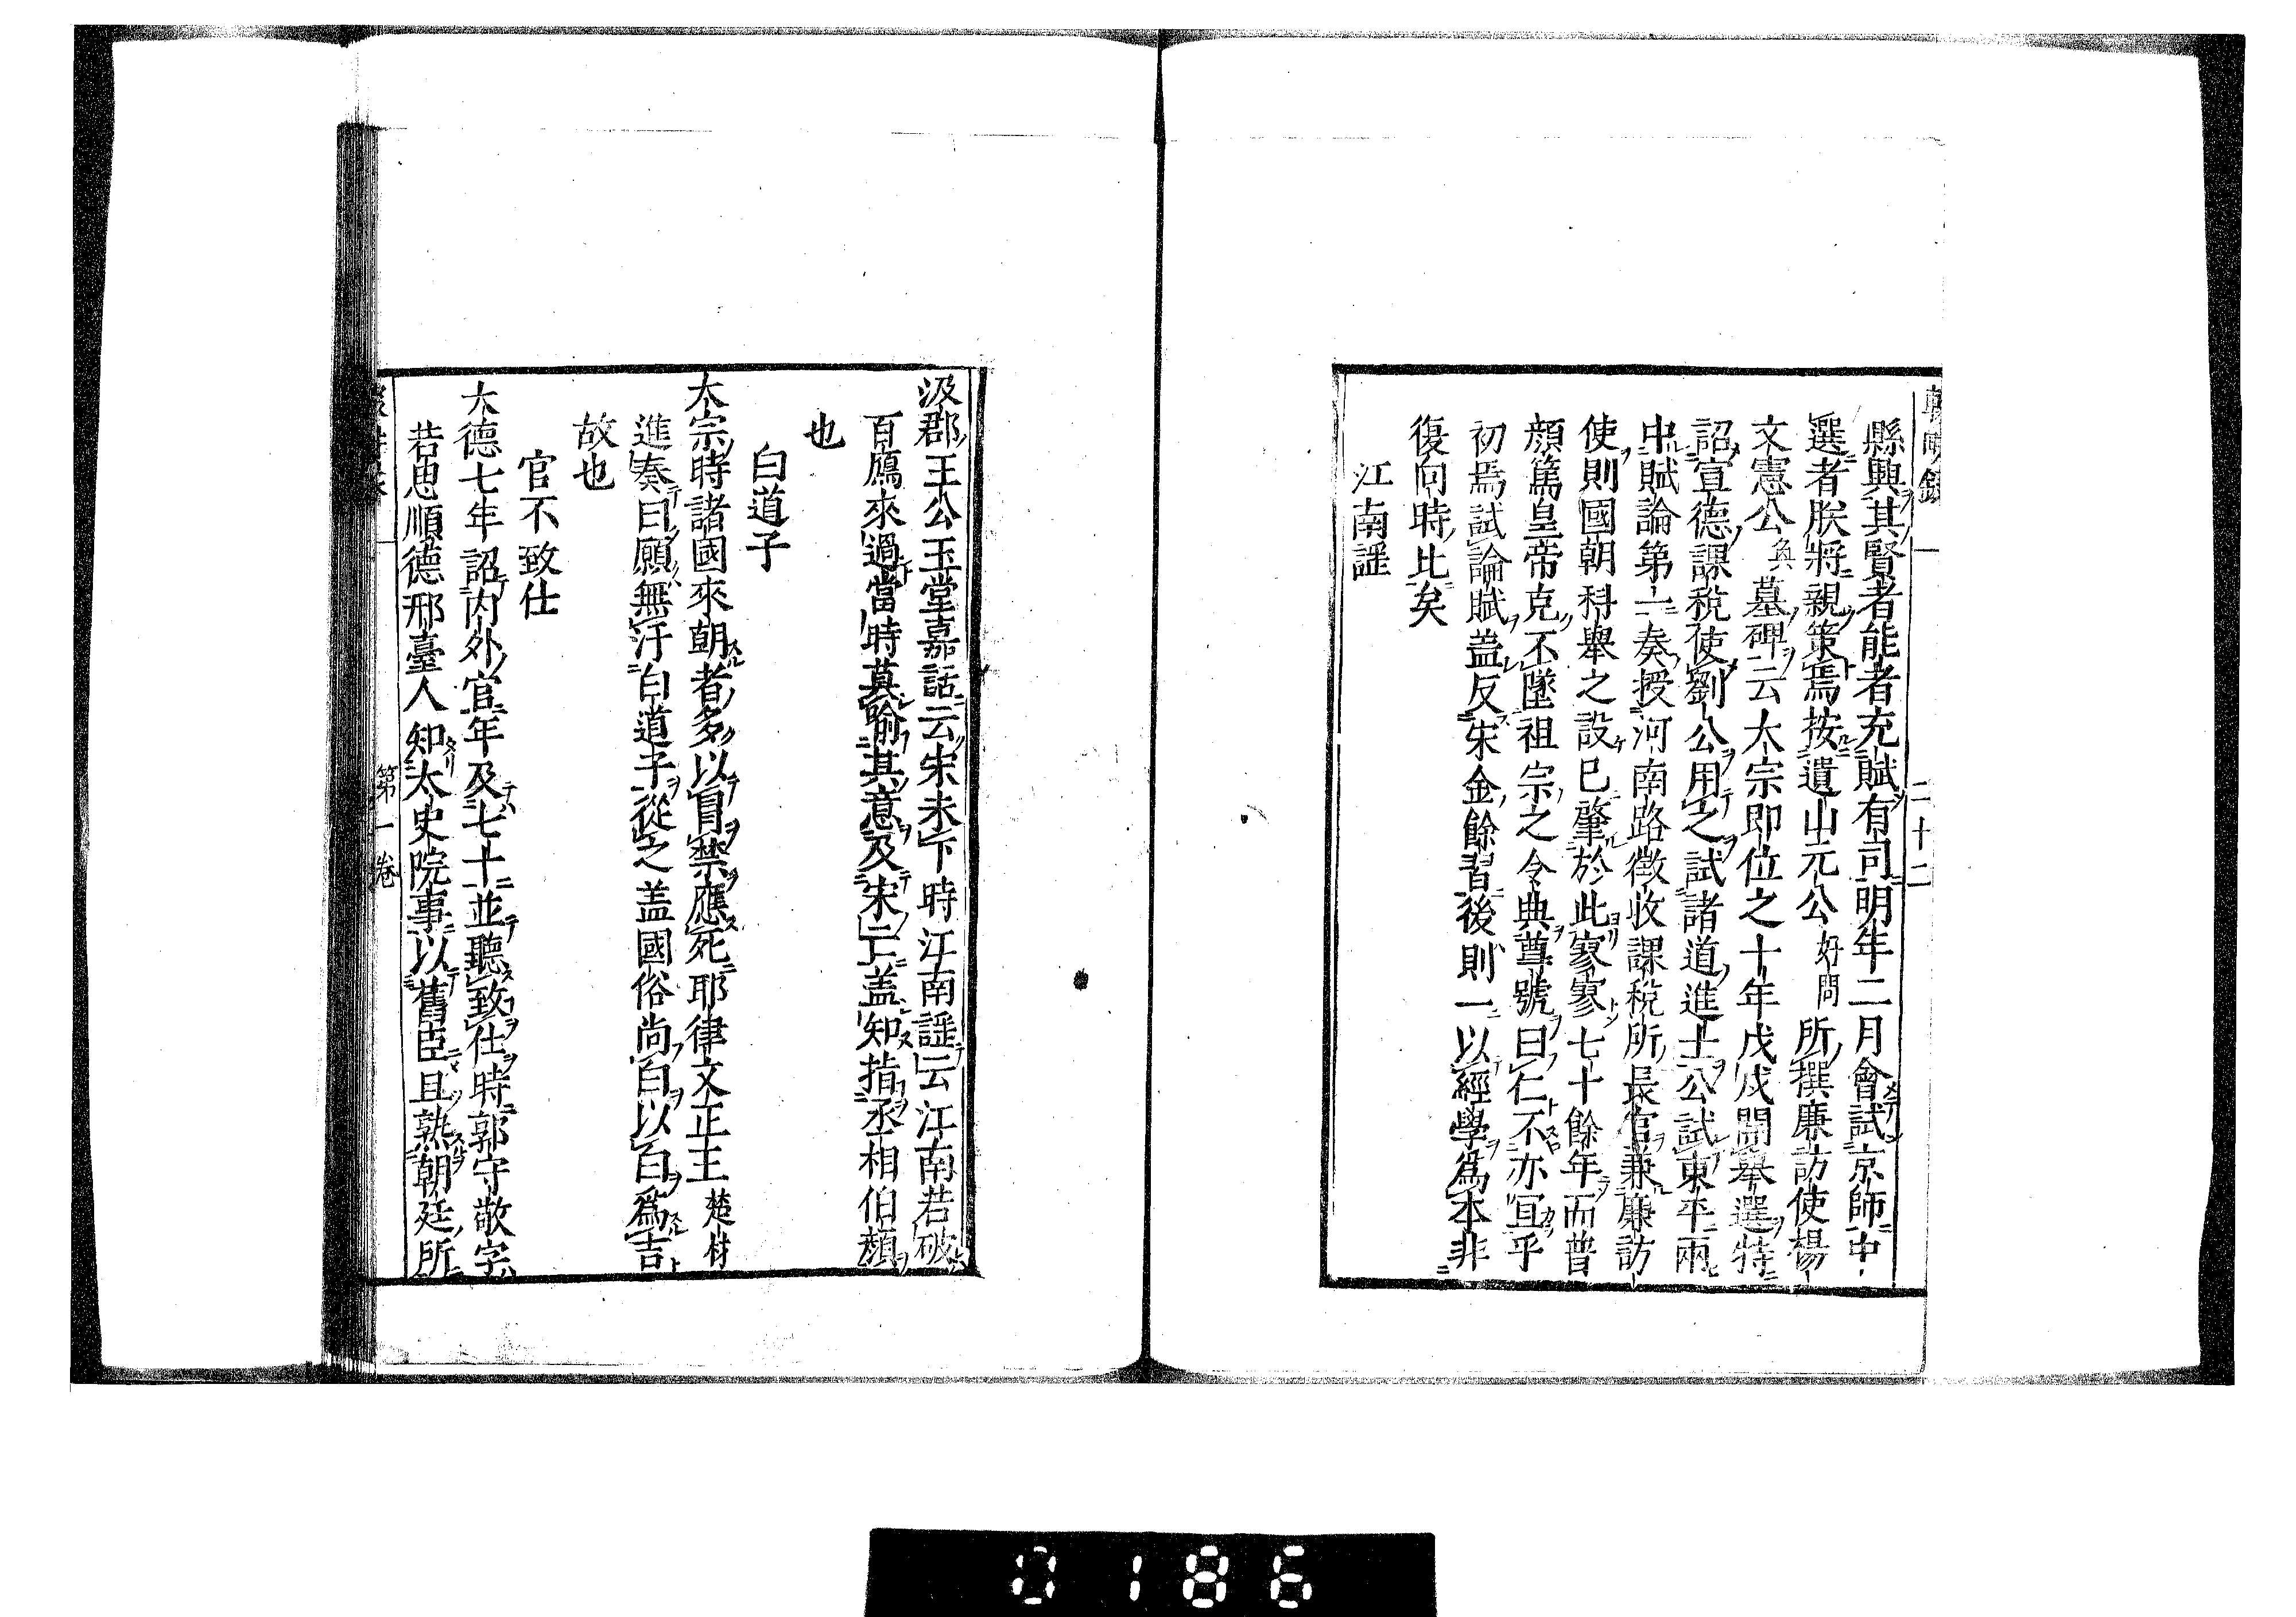 輟畊録 一 二十二
縣興其賢者能者充賦有司明年二月會試京師中
選者朕將親策焉按遺山元公好問所撰廉訪使楊
文憲公奐墓碑云太宗即位之十年戊戌開舉選特
詔宣德課稅使劉公用之試諸道進士公試東平兩
中賦論第一奏授河南路徵收課稅所長官兼廉訪
使則國朝科舉之設已肇於此寥寥七十餘年而普
顏篤皇帝克不墜祖宗之令典尊號曰仁不亦宜乎
初焉試論賦盖反宋金餘習後則一以經學爲本非
復向時比矣
江南謡
汲郡王公玉堂嘉話云宋未下時江南謡云江南若破
百鴈來過當時莫喻其意及宋亡盖知指丞相伯顏
也
白道子
太宗時諸國來朝者多以冒禁應死耶律文正王楚材
進奏曰願無汙白道子從之盖國俗尚白以白爲吉
故也
官不致仕
大德七年詔内外官年及七十並聽致仕時郭守敬字
若思順德邢臺人知太史院事以舊臣且熟朝廷所
第一卷
0186